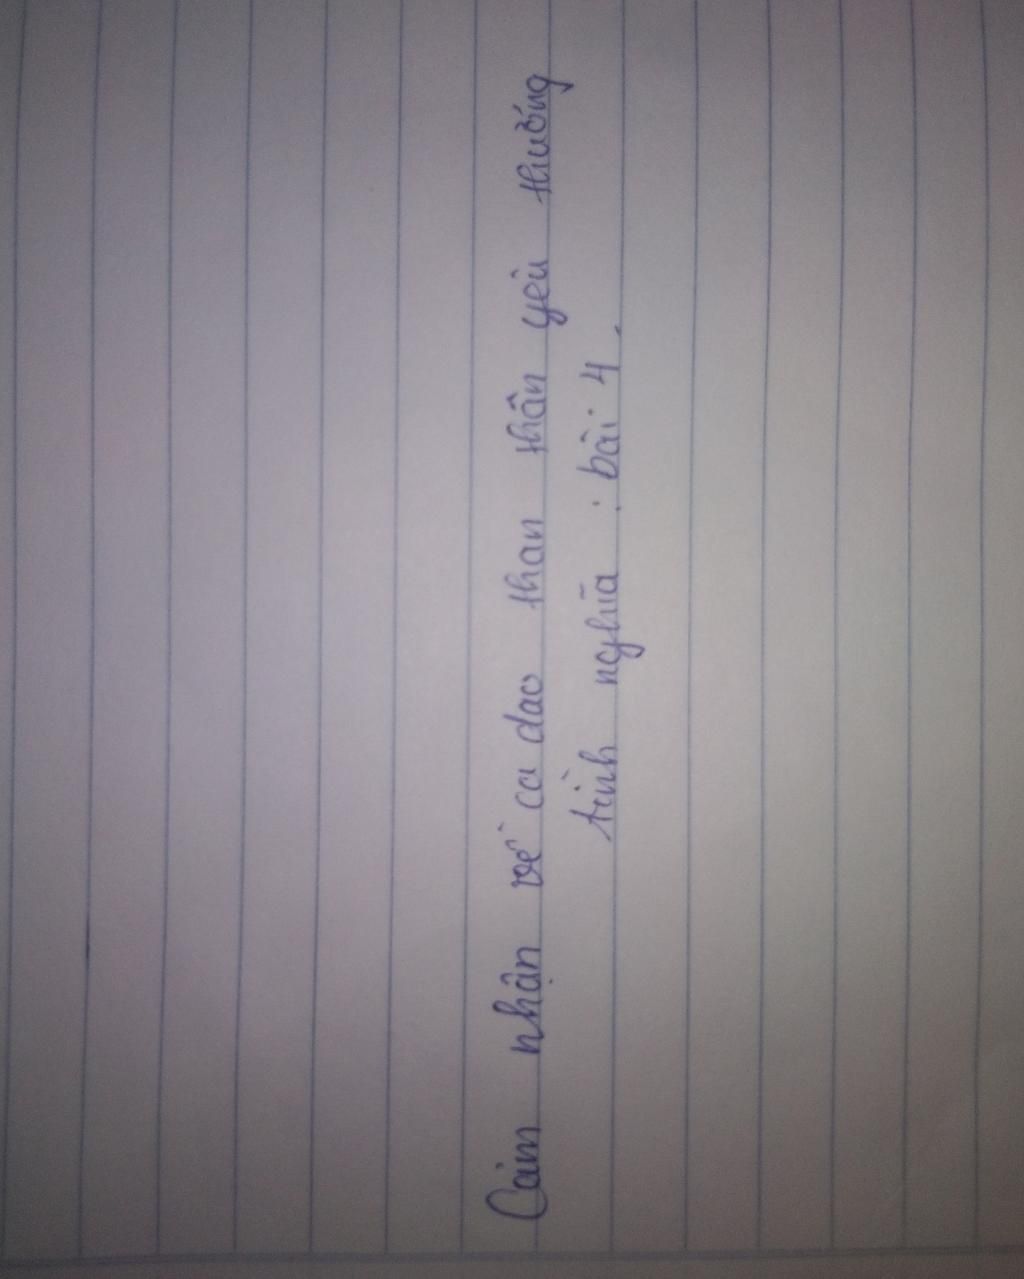 Cảm nhận về ca dao than thân yêu thương
tình nghĩa : bài 4.